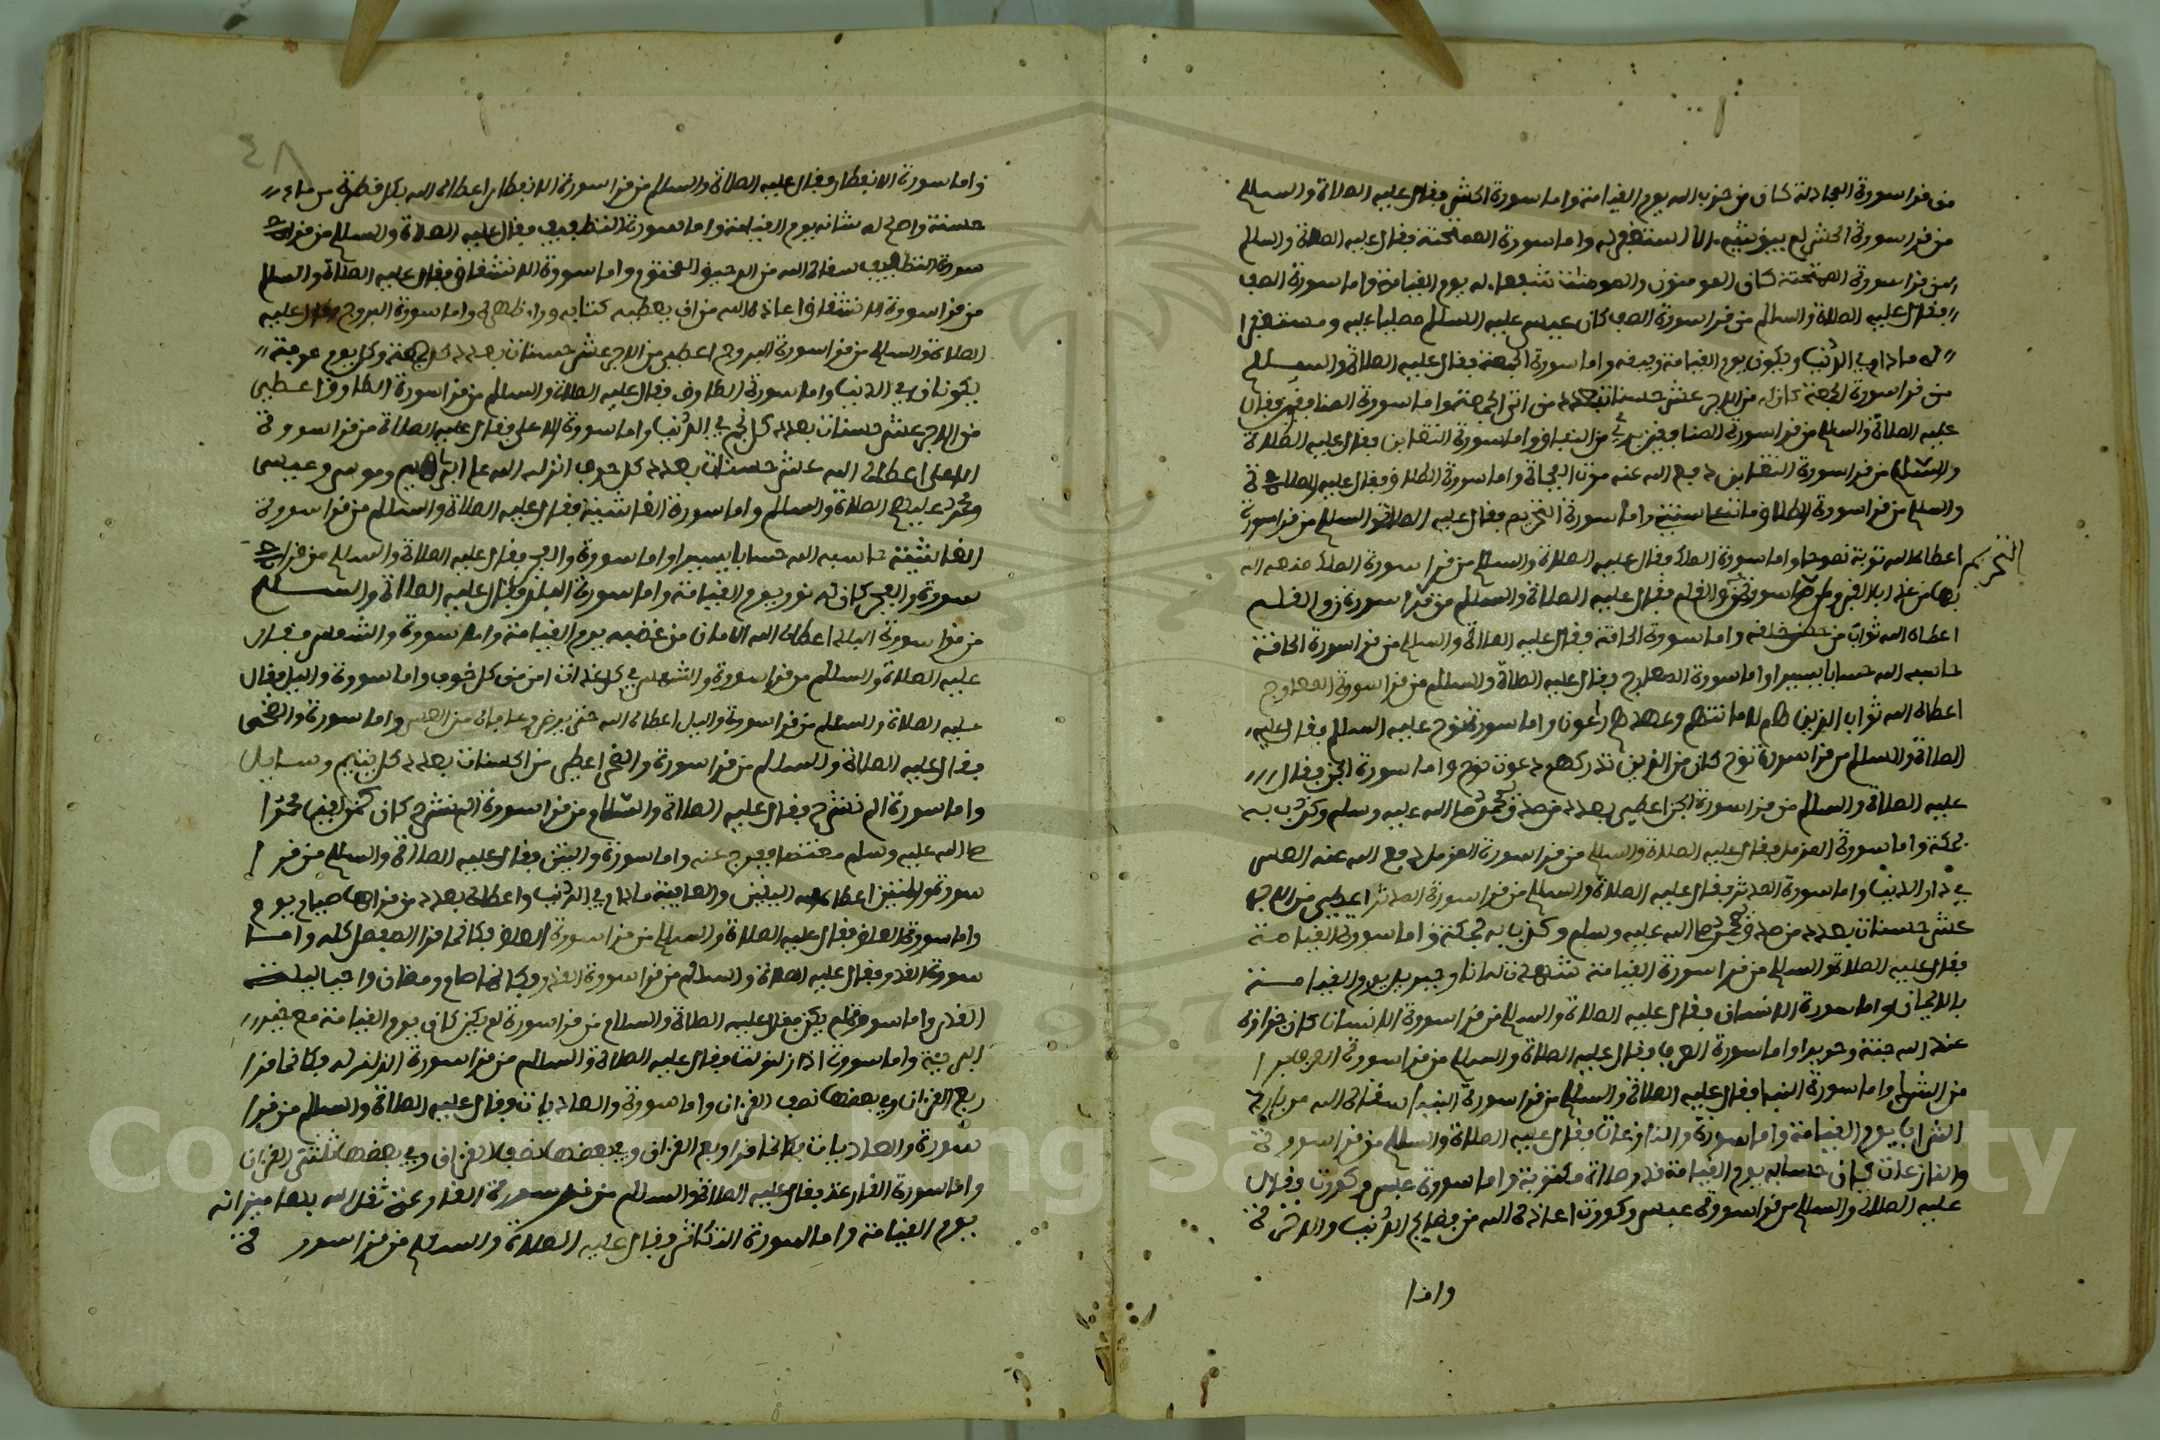 من قرا سورة المجادلة كان من حزب الله يوم القيامة واما سورة الحشر فقال عليه الصلاة والسلام
من قرا سورة الحشر لم يبق شيء الا استغفر له واما سورة الممتحنة فقال عليه الصلاة والسلام
من قرا سورة الممتحنة كان المومنون والمومنات شفعا له يوم القيامة واما سورة الصف
فقال عليه الصلاة والسلام من قرا سورة الصف كان عيسى عليه السلام مصليا عليه ومستغفرا
له مادام في الدنيا ويكون يوم القيامة رفيقه واما سورة الجمعة فقال عليه الصلاة والسلام
من قرا سورة الجمعة كان له من الاجر عشر حسنات بعدد من اتى الجمعة واما سورة المنافقين فقال
عليه الصلاة والسلام من قرا سورة المنافقين برئ من النفاق واما سورة التغابن فقال عليه الصلاة
والسلام من قرا سورة التغابن دفع الله عنه موت الفجاة واما سورة الطلاق فقال عليه الصلاة
والسلام من قرا سورة الطلاق مات على سنتي واما سورة التحريم فقال عليه الصلاة والسلام من قرا سورة
التحريم اعطاه الله توبة نصوحا واما سورة الملك فقال عليه الصلاة والسلام من قرا سورة الملك منعه الله
بها من عذاب القبر واما سورة ن والقلم فقال عليه الصلاة والسلام من قرا سورة ن والقلم
اعطاه الله ثواب من حسن خلقه واما سورة الحاقة فقال عليه الصلاة والسلام من قرا سورة الحاقة
حاسبه الله حسابا يسيرا واما سورة المعارج فقال عليه الصلاة والسلام من قرا سورة المعارج
اعطاه الله ثواب الذين هم لاماناتهم وعهدهم راعون واما سورة نوح عليه السلام فقال عليه
الصلاة والسلام من قرا سورة نوح كان من الذين تدركهم دعوة نوح واما سورة الجن فقال
عليه الصلاة والسلام من قرا سورة الجن اعطي بعدد من صدق محمد صلى الله عليه وسلم وكذب به
بمكة واما سورة المزمل فقال عليه الصلاة والسلام من قرا سورة المزمل دفع الله عنه العسر
في دار الدنيا واما سورة المدثر فقال عليه الصلاة والسلام من قرا سورة المدثر اعطي من الاجر
عشر حسنات بعدد من صدق محمد صلى الله عليه وسلم وكذب به بمكة واما سورة القيامة
فقال عليه الصلاة والسلام من قرا سورة القيامة شهدت له انا وجبريل يوم القيامة
بالايمان واما سورة الانسان فقال عليه الصلاة والسلام من قرا سورة الانسان كان جزاؤه
عند الله جنة وحريرا واما سورة فقال عليه الصلاة والسلام من قرا سورة
من الشرك واما سورة النبا فقال عليه الصلاة والسلام من قرا سورة النبا سقاه الله من بارد
الشراب يوم القيامة واما سورة والنازعات فقال عليه الصلاة والسلام من قرا سورة
والنازعات كان حسابه يوم القيامة قدر صلاة مكتوبة واما سورة عبس وكورت فقال
عليه الصلاة والسلام من قرا سورة عبس وكورت اعاذه الله من فضايح الدنيا والاخرة
واما
٤٨
واما سورة الانفطار فقال عليه الصلاة والسلام من قرا سورة الانفطار اعطاه الله بكل قطرة من ماء
حسنة واصلح له شانه يوم القيامة واما سورة التطفيف فقال عليه الصلاة والسلام من قرا
سورة التطفيف سقاه الله من الرحيق المختوم واما سورة الانشقاق فقال عليه الصلاة والسلام
من قرا سورة الانشقاق اعاذه الله من ان يعطيه كتابه وراء ظهره واما سورة البروج فقال عليه
الصلاة والسلام من قرا سورة البروج اعطي من الاجر عشر حسنات بعدد كل جمعة وكل يوم عرفة
يكونان في الدنيا واما سورة الطارق فقال عليه الصلاة والسلام من قرا سورة الطارق اعطي
من الاجر عشر حسنات بعدد كل نجم في الدنيا واما سورة الاعلى فقال عليه الصلاة من قرا سورة
الاعلى اعطاه الله عشر حسنات بعدد كل حرف انزله الله على ابراهيم وموسى وعيسى
ومحمد عليهم الصلاة والسلام واما سورة الغاشية فقال عليه الصلاة والسلام من قرا سورة
الغاشية حاسبه الله حسابا يسيرا واما سورة والفجر فقال عليه الصلاة والسلام من قرا
سورة والفجر كان له نور يوم القيامة واما سورة البلد فقال عليه الصلاة والسلام
من قرا سورة البلد اعطاه الله الامان من غضبه يوم القيامة واما سورة والشمس فقال
عليه الصلاة والسلام من قرا سورة والشمس في كل غداة امن من كل خوف واما سورة والليل فقال
عليه الصلاة والسلام من قرا سورة والليل اعطاه الله حتى يرضى وعافاه من العسر واما سورة والضحى
فقال عليه الصلاة والسلام من قرا سورة والضحى اعطي من الحسنات بعدد كل يتيم وسايل
واما سورة الم نشرح فقال عليه الصلاة والسلام من قرا سورة الم نشرح كان كمن لقي محمدا
صلى الله عليه وسلم مغتما ففرج عنه واما سورة والتين فقال عليه الصلاة والسلام من قرا
سورة والتين اعطاه الله اليقين والعافية مادام في الدنيا واعطاه بعدد من قراها صيام يوم
واما سورة العلق فقال عليه الصلاة والسلام من قرا سورة العلق فكانما قرا المفصل كله واما
سورة القدر فقال عليه الصلاة والسلام من قرا سورة القدر فكانما صام رمضان واحيا ليلة
القدر واما سورة لم يكن فقال عليه الصلاة والسلام من قرا سورة لم يكن كان يوم القيامة مع خير
البرية واما سورة اذا زلزلت فقال عليه الصلاة والسلام من قرا سورة الزلزلة فكانما قرا
ربع القران وفي بعضها نصف القران واما سورة والعاديات فقال عليه الصلاة والسلام من قرا
سورة والعاديات فكانما قرا ربع القران وفي بعضها نصف القران وفي بعضها ثلثي القران
واما سورة القارعة فقال عليه الصلاة والسلام من قرا سورة القارعة ثقل الله بها ميزانه
يوم القيامة واما السورة التكاثر فقال عليه الصلاة والسلام من قرا سورة